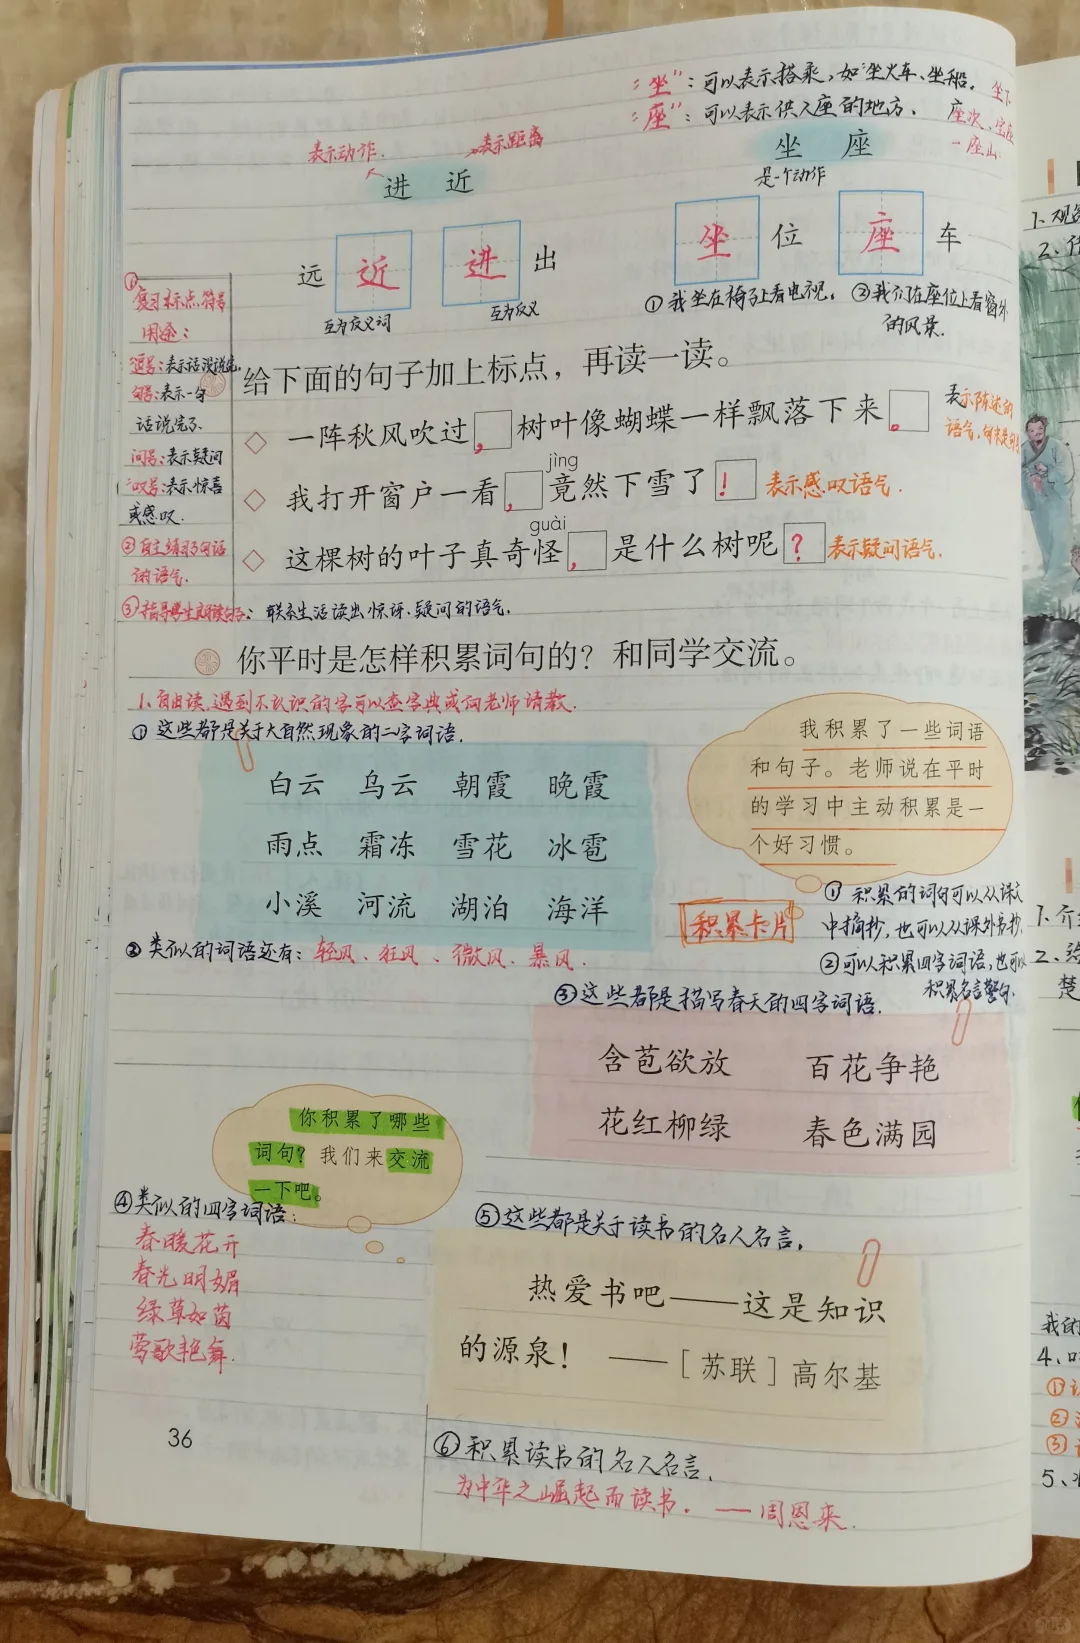 “坐”：可以表示搭乘，如：坐火车、坐船。 坐下
“座”：可以表示供人座的地方、 座次、
一座山
表示动作. 表示距离
进 近
坐 座
是一个动作
远 近 进 出
坐 位 座 车
互为反义词 互为反义
①我坐在椅子上看电视。 ②我们在座位上看窗外
的风景.
① 复习标点符号
用途：
逗号：表示话没说完,
句号：表示一句
话说完了.
问号：表示疑问
叹号：表示惊喜
或感叹.
②自主练习句话
的语气.
给下面的句子加上标点，再读一读。
◇ 一阵秋风吹过，树叶像蝴蝶一样飘落下来。
表示陈述的
语气,
jìng
◇ 我打开窗户一看，竟然下雪了！ 表示感叹语气.
guài
◇ 这棵树的叶子真奇怪，是什么树呢？ 表示疑问语气.
③指导学生朗读句子： 联系生活读出惊讶、疑问的语气.
你平时是怎样积累词句的？和同学交流。
1.自由读.遇到不认识的字可以查字典或向老师请教.
①这些都是关于大自然现象的二字词语.
白云 乌云 朝霞 晚霞
雨点 霜冻 雪花 冰雹
小溪 河流 湖泊 海洋
我积累了一些词语
和句子。老师说在平时
的学习中主动积累是一
个好习惯。
积累卡片
① 积累的词句可以从课文
中摘抄，也可以从课外书抄.
②可以积累四字词语，也可以
积累名言警句.
② 类似的词语还有：轻风、狂风、微风、暴风.
③这些都是描写春天的四字词语.
含苞欲放 百花争艳
花红柳绿 春色满园
你积累了哪些
词句？我们来交流
一下吧。
④类似的四字词语：
春暖花开
春光明媚
绿草如茵
莺歌艳舞.
⑤这些都是关于读书的名人名言,
热爱书吧——这是知识
的源泉！ ——［苏联］高尔基
⑥积累读书的名人名言,
为中华之崛起而读书. ——周恩来.
36
2、
1、介
2、给
楚
我的
4、
①
②
③
5、